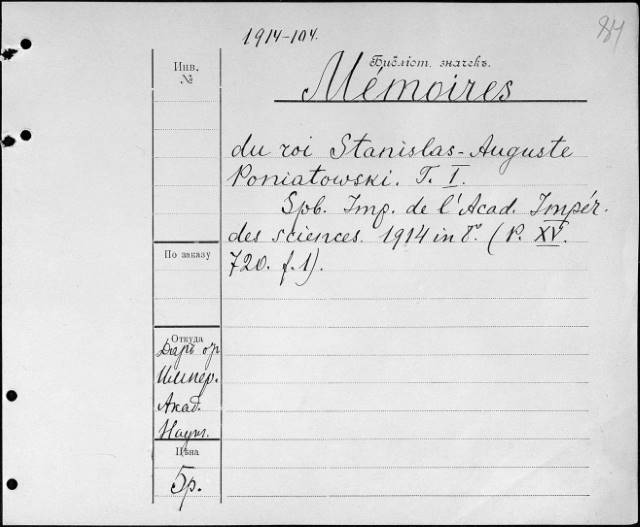 1914-104.
84
Инв.
№
Библіот. значекъ.
Mémoires
du roi Stanislas-Auguste
Poniatowski. T. I.
Spb. Imp. de l'Acad. Impér.
des sciences. 1914 in 8º. (P. XV.
720. f. 1).
По заказу
Откуда
Даръ от
Импер.
Акад.
Наукъ.
Цѣна
5р.